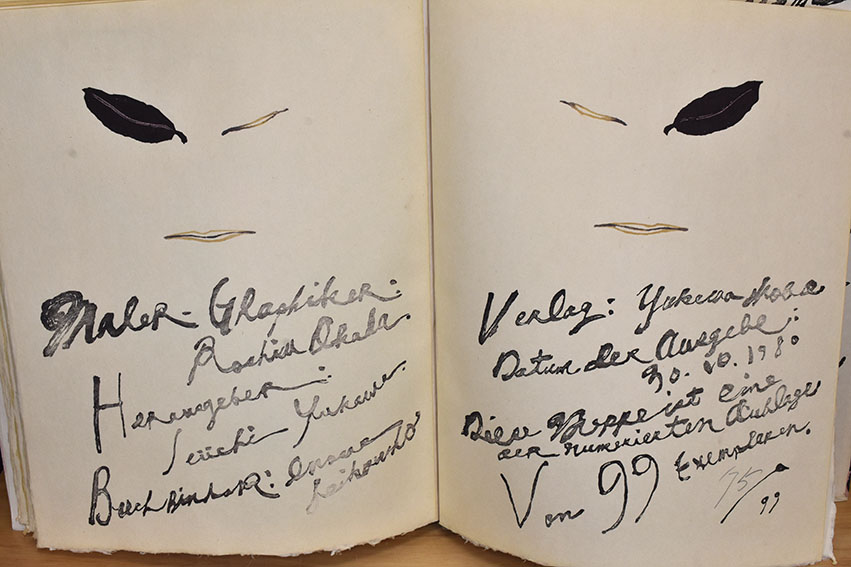 Maler-Glaphiker:
Okabe.
Herausgeber:
Seiichi Yukawa.
Buchbinder:
Verlag: Yukawa
Datum der Ausgabe:
30. 10. 1980
Diese Mappe ist eine
der numerierten Auflage
Von 99 Exemplaren.
75/99